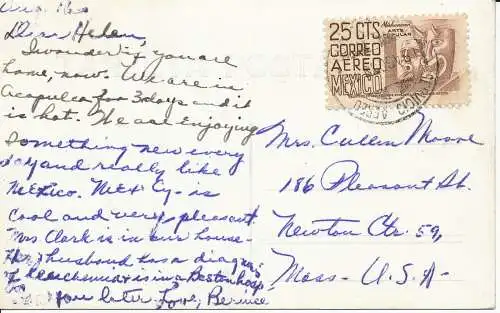 Dear Helen,
I wonder if you are
home, now. We are in
Acapulco for 3 days and it
is hot. We are enjoying
something new every
day and really like
Mexico. Mex Cy - is
cool and very pleasant.
Mrs Clark is in our house -
Her husband has a diagnosis
of leuchemia & is in a Boston hosp.
you later Love, Bernice
25 CTS
CORREO
AEREO
MEXICO
ARTE
POPULAR
Mrs. Cullen Moore
186 Pleasant St.
Newton Ctr. 59,
Mass - U.S.A -